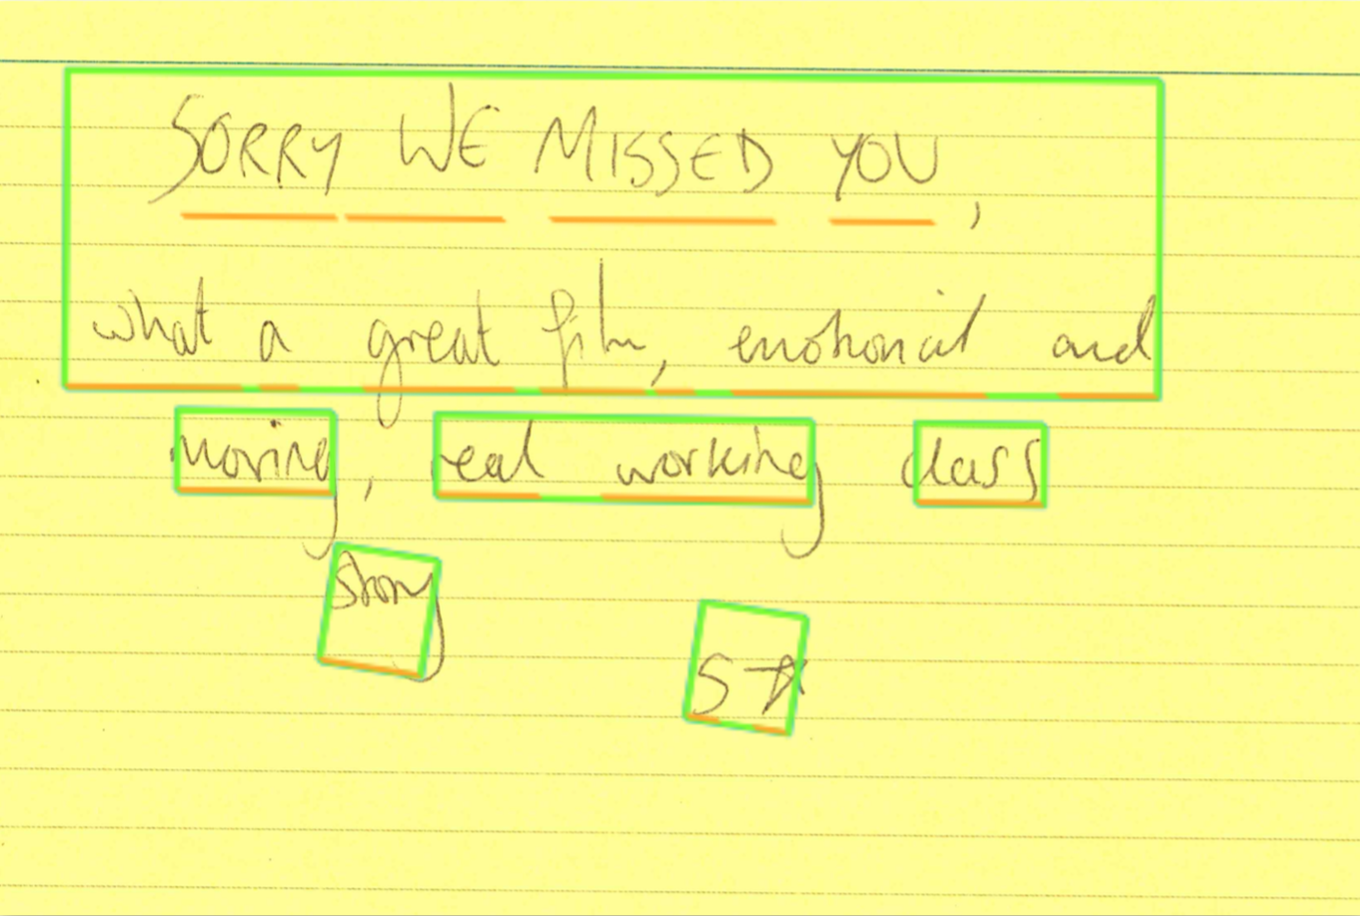 SORRY WE MISSED YOU,
what a great film, emotional and
moving, real working class
story
5☆